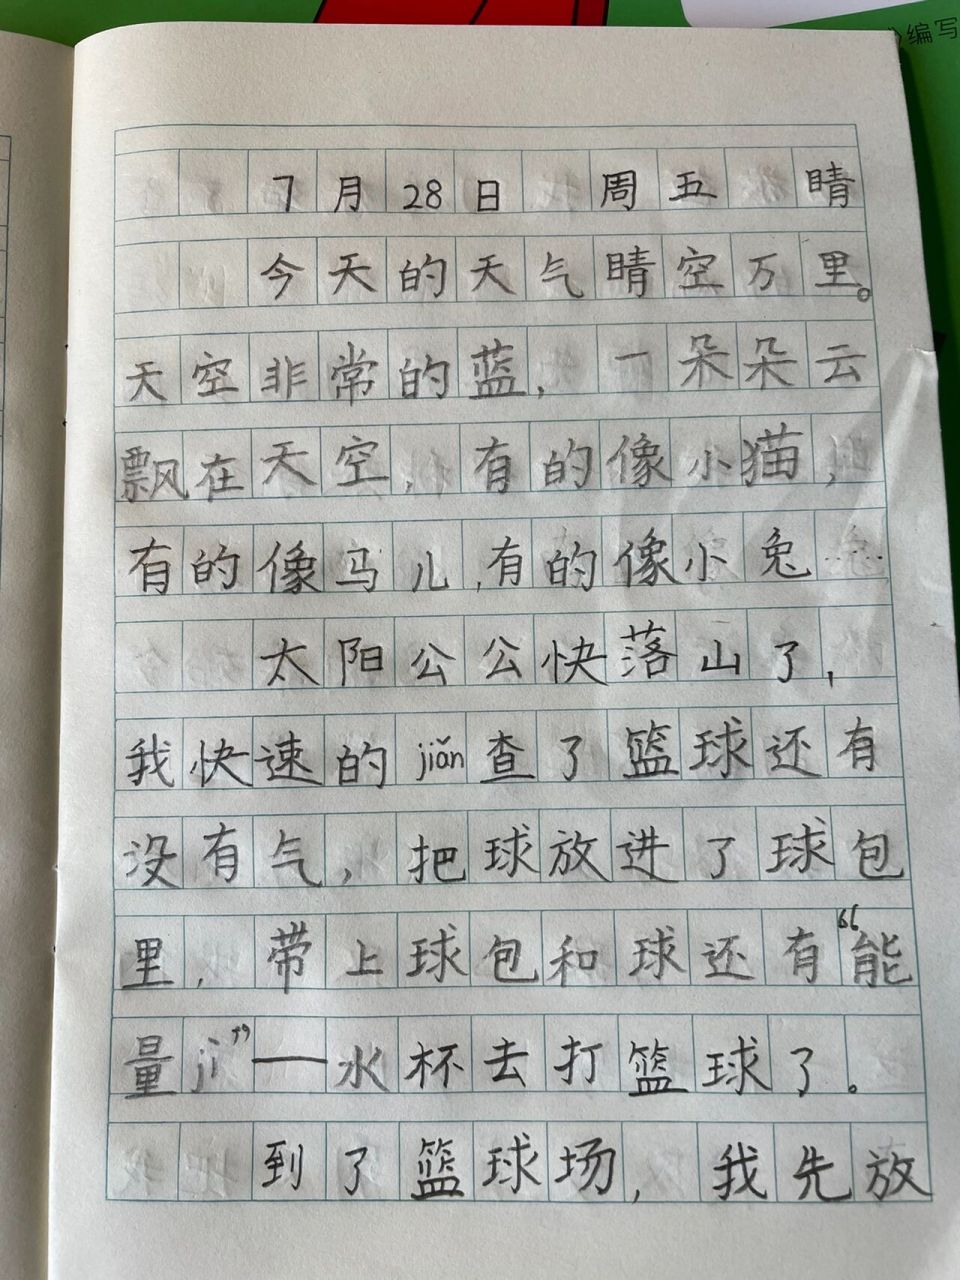 编写
7月28日 周五 晴
今天的天气晴空万里。
天空非常的蓝,一朵朵云
飘在天空,有的像小猫,
有的像马儿,有的像小兔……
太阳公公快落山了,
我快速的jiǎn查了篮球还有
没有气,把球放进了球包
里,带上球包和球还有“能
量jì”——水杯去打篮球了。
到了篮球场,我先放